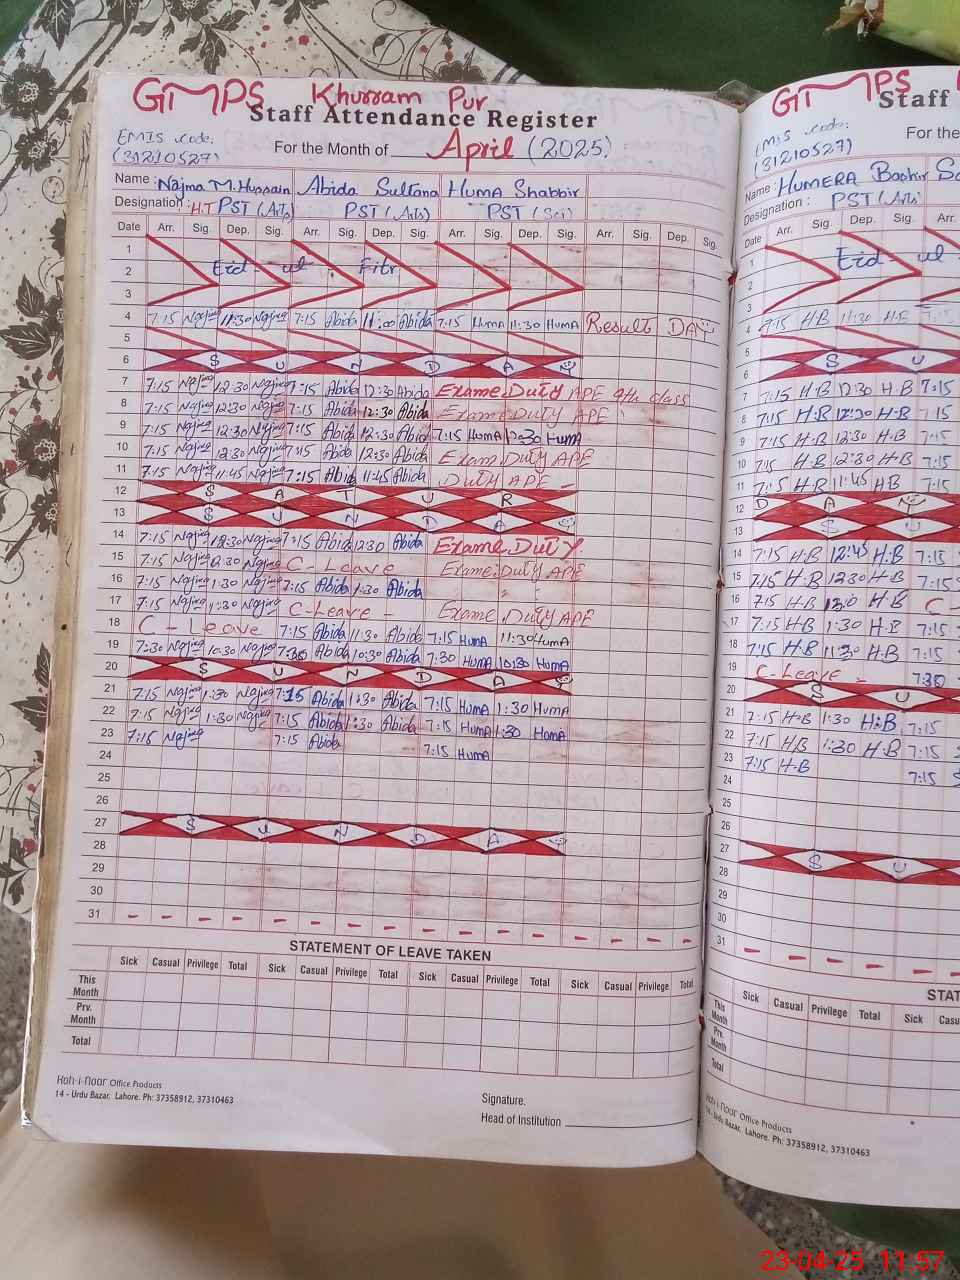 GMPS Khurram Pur
Staff Attendance Register
EMIS code:
(31210527)
For the Month of April (2025)
Name : Najma M. Hussain Abida Sultana Huma Shabbir
Designation : H.T PST (Arts) PST (Arts) PST (Sci)
Date Arr. Sig. Dep. Sig. Arr. Sig. Dep. Sig. Arr. Sig. Dep. Sig. Arr. Sig. Dep. Sig.
1
2 Eid ul Fitr
3
4 7:15 Najma 11:30 Najma 7:15 Abida 11:00 Abida 7:15 HumA 11:30 HumA Result DAY
5
6 S U N D A Y
7 7:15 Najma 12:30 Najma 7:15 Abida 12:30 Abida Exame Duty APE 9th class
8 7:15 Najma 12:30 Najma 7:15 Abida 12:30 Abida Exame DUTY APE
9 7:15 Najma 12:30 Najma 7:15 Abida 12:30 Abida 7:15 HumA 12:30 HumA
10 7:15 Najma 12:30 Najma 7:15 Abida 12:30 Abida Exam Duty APE
11 7:15 Najma 11:45 Najma 7:15 Abida 11:45 Abida DUTY APE -
12 S A T U R
13 S U N D A Y
14 7:15 Najma 12:30 Najma 7:15 Abida 12:30 Abida Exame DUTY
15 7:15 Najma 12:30 Najma C - Leave Exame Duty APE
16 7:15 Najma 1:30 Najma 7:15 Abida 1:30 Abida " "
17 7:15 Najma 1:30 Najma C-Leave - Exame Duty APE
18 C - Leave 7:15 Abida 11:30 Abida 7:15 HumA 11:30 HumA
19 7:30 Najma 10:30 Najma 7:30 Abida 10:30 Abida 7:30 HumA 10:30 HumA
20 S U N D A Y
21 7:15 Najma 1:30 Najma 7:15 Abida 1:30 Abida 7:15 HumA 1:30 HumA
22 7:15 Najma 1:30 Najma 7:15 Abida 1:30 Abida 7:15 HumA 1:30 HumA
23 7:15 Najma 7:15 Abida 7:15 HumA
24
25
26
27 S U N D A Y
28
29
30
31 - - - - - - - - - - - - - - - -
STATEMENT OF LEAVE TAKEN
Sick Casual Privilege Total Sick Casual Privilege Total Sick Casual Privilege Total Sick Casual Privilege Total
This Month
Prv. Month
Total
Koh-i-noor Office Products
14 - Urdu Bazar, Lahore. Ph: 37358912, 37310463
Signature.
Head of Institution
GMPS
Staff
EMIS code:
(31210527)
For the
Name : HUMERA Bashir
Designation : PST (Arts)
Date Arr. Sig. Dep. Sig. Arr.
1 Eid ul
2
3
4 7:15 H B 11:30 H.B
5
6 S U
7 7:15 H B 12:30 H B 7:15
8 7:15 H.B 12:30 H.B 7:15
9 7:15 H B 12:30 H.B 7:15
10 7:15 H.B 12:30 H.B 7:15
11 7:15 H.B 11:45 HB 7:15
12 D A Y
13 S U
14 7:15 H.B 12:45 H.B 7:15
15 7:15 H.B 12:30 H.B 7:15
16 7:15 H.B H.B C -
17 7:15 H.B 1:30 H.B 7:15
18 7:15 H.B 11:30 H.B 7:15
19 C-Leave - 7:30
20 S U
21 7:15 H.B 1:30 H.B 7:15
22 7:15 H.B 1:30 H.B 7:15
23 7:15 H.B 7:15
24
25
26
27 S U
28
29
30
31 - - - - - -
STAT
Sick Casual Privilege Total Sick
This Month
Prv. Month
Total
Koh-i-noor Office Products
14 - Urdu Bazar, Lahore. Ph: 37358912, 37310463
23-04-25 11:57